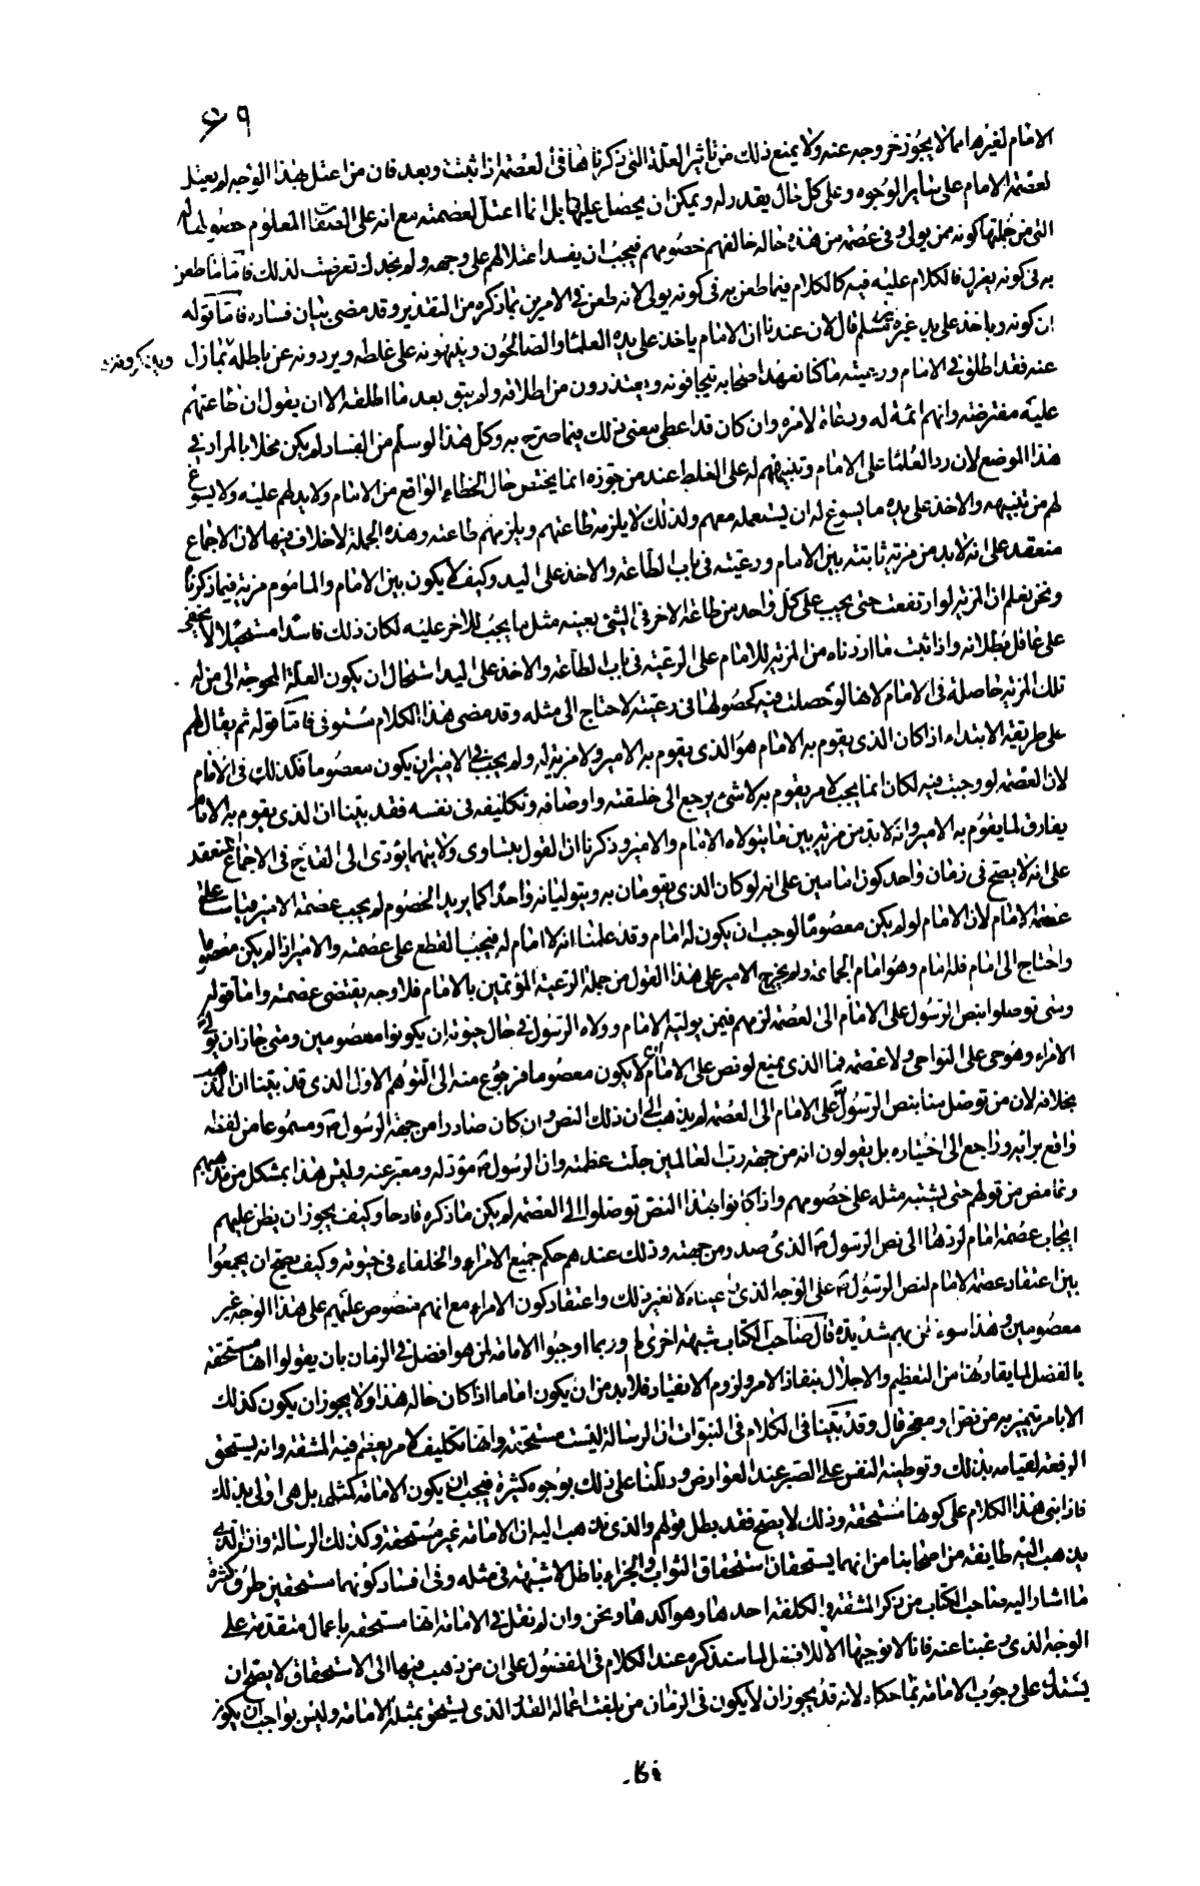 ٦٩
الامام لغيرها مما لا يجوز خروجه عنه ولا يمنع ذلك من تأثير العلة التي ذكرناها في العصمة اذا ثبتت وبعد فان من اعتل بهذا الوجه لم يعتل
لعصمة الامام على سائر الوجوه وعلى كل حال يقدر له ويمكن ان يحصل عليها بل انما اعتل لعصمته مع انه على الصفات المعلوم حصولها له
التي من جملتها كونه ممن يولى وفي عصمة من هذه حاله خالفهم خصومهم فيجب ان يفسد اعتلالهم على وجهه ولم نجدك تعرضت لذلك فاما ما طعن
به في كونه يعزل فالكلام عليه فيه كالكلام فيما طعن به في كونه يولى لانه طعن في الامرين بما ذكره من التقدير وقد مضى بيان فساده فاما قوله
ان كونه وياخذ على يد غيره مسلم قال لان عندنا ان الامام ياخذ على يده العلماء والصالحون وينبهونه على غلطه ويردونه عن باطله بما زل
عنه فقد اطلق في الامام ورعيته ما كنا نعهد اصحابه يتجافونه ويعتذرون من اطلاقه ولم يبق بعد ما اطلقه الا ان يقول ان طاعتهم
عليه مفترضة وانهم ائمة له ودعاة لامره وان كان قد اعطى معنى ذلك فيما صرح به وكل هذا لو سلم من الفساد لم يكن مخلا بالمراد في
هذا الموضع لان رد العلماء على الامام وتنبيههم له على الغلط عند من جوزه انما يختص حال الخطاء الواقع من الامام ولا بد لهم عليه ولا يسوغ
لهم من تنبيهه والاخذ على يده ما يسوغ له ان يستعمله معهم ولذلك لا يلزمه طاعتهم ويلزمهم طاعته وهذه الجملة لا خلاف فيها لان الاجماع
منعقد على انه لابد من مزية ثابتة بين الامام ورعيته في باب الطاعة والاخذ على اليد وكيف لا يكون بين الامام والماموم مزية فيما ذكرنا
ونحن نعلم ان المزية لو ارتفعت حتى يجب على كل واحد من طاعة الاخر في الشي بعينه مثل ما يجب للاخر عليه لكان ذلك فاسدا مستحيلا لا يخفى
على عاقل بطلانه واذا ثبت ما اردناه من المزية للامام على الرعية في باب الطاعة والاخذ على اليد استحال ان يكون العلة المحوجة الى من له
تلك المزية حاصلة في الامام لانها لو حصلت فيه كحصولها في رعيته لاحتاج الى مثله وقد مضى هذا الكلام مستوفى فاما قوله ثم يقال لهم
على طريقة الابتداء اذا كان الذي يقوم به الامام هو الذي يقوم به الامير ولا مزية له ولم يجب في الامير ان يكون معصوما فكذلك في الامام
لان العصمة لو وجبت فيه لكان انما يجب لامر يقوم به لا شي يرجع الى خلقته واوصافه وتكليفه في نفسه فقد بينا ان الذي يقوم به الامام
يفارق لما يقوم به الامير وانه لابد من مزية بين ما يتولاه الامام والامير وذكرنا ان القول بتساوي ولايتهما يؤدي الى القدح في الاجماع المنعقد
على انه لا يصح في زمان واحد كون امامين على انه لو كان الذي يقومان به ويتوليانه واحدا كما يريد الخصوم لم يجب عصمة الامير قياسا على
عصمة الامام لان الامام لو لم يكن معصوما لوجب ان يكون له امام وقد علمنا انه لا امام له فيجب القطع على عصمته والامير اذا لم يكن معصوما
واحتاج الى امام فله امام وهو امام الجماعة ولم يخرج الامير على هذا القول من جملة الرعية المؤتمين بالامام فلا وجه يقتضي عصمته واما قوله
ومتى توصلوا بنص الرسول على الامام الى العصمة لزمهم فيمن يوليه الامام وولاه الرسول في حال حيوته ان يكونوا معصومين ومتى جاز ان يولي
الامراء وهو حي على النواحي ولا عصمة فما الذي يمنع لو نص على الامام ان لا يكون معصوما فرجوع منه الى التوهم الاول الذي قد بينا ان المذهب
بخلافه لان من توصل منا بنص الرسول على الامام الى العصمة لم يذهب الى ان ذلك النص وان كان صادرا من جهة الرسول ومسموعا من لفظه
واقع برايه وراجع الى اختياره بل يقولون انه من جهة رب العالمين جلت عظمته وان الرسول مؤد له ومعبر عنه وليس هذا بمشكل من مذهبهم
وغامض من قولهم حتى يشتبه مثله على خصومهم واذا كانوا بهذا النص توصلوا الى العصمة لم يكن ما ذكره قادحا وكيف يجوز ان يظن عليهم
ايجاب عصمة امام لردها الى نص الرسول الذي صدر من جهته وذلك عندهم حكم جميع الامراء والخلفاء في حيوته وكيف يصح ان يجمعوا
بين اعتقاد عصمة الامام لنص الرسول على الوجه الذي عيناه لا لغير ذلك واعتقاد كون الامراء مع انهم منصوص عليهم على هذا الوجه غير
معصومين وهذا سوء ظن بهم شديد قال صاحب الكتاب شبهة اخرى لهم وربما اوجبوا الامامة لمن هو افضل في الزمان بان يقولوا انها مستحقة
بالفضل لما يقارنها من التعظيم والاجلال بنفاذ الامر ولزوم الانقياد فلابد من ان يكون اماما اذا كان حاله هذا ولا يجوز ان يكون كذلك
الا بامر يتميز به من نص او معجز قال وقد بينا في الكلام في النبوات ان الرسالة ليست مستحقة وانها تكليف لامر يعظم فيه المشقة وانه يستحق
الرفعة لقيامه بذلك وتوطينه النفس على الصبر عند العوارض ودللنا على ذلك بوجوه كثيرة فيجب ان يكون الامامة كمثلها بل هي اولى بذلك
فاذا بنى هذا الكلام على كونها مستحقة وذلك لا يصح فقد بطل قولهم والذي نذهب اليه ان الامامة غير مستحقة وكذلك الرسالة وان الذي
يذهب اليه طايفة من اصحابنا من انهما يستحقان استحقاق الثواب والجزاء باطل لا شبهة في مثله وفي افساد كونهما مستحقين طرق كثيرة
ما اشار اليه صاحب الكتاب من ذكر المشقة والكلفة احدها وهو اكدها ونحن وان لم نقل في الامامة انها مستحقة باعمال متقدمة على
الوجه الذي رغبنا عنه فانا لا نوجبها الا للافضل لما سنذكره عند الكلام في المفضول على ان من ذهب فيها الى الاستحقاق لا يصح ان
يستدل على وجوب الامامة بما حكاه لانه قد يجوز ان لا يكون في الزمان من بلغت اعماله القدر الذي يستحق بمثله الامامة وليس بواجب ان يكون